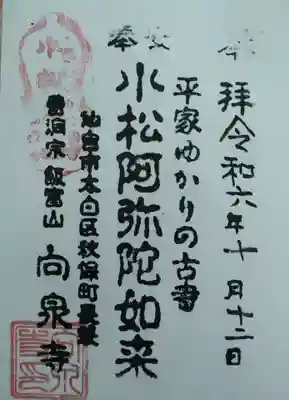 拝令和六年十月十二日
平家ゆかりの古
小松阿弥陀如来
仙台市太白区秋保町長袋
曹洞宗飯富山 向泉寺